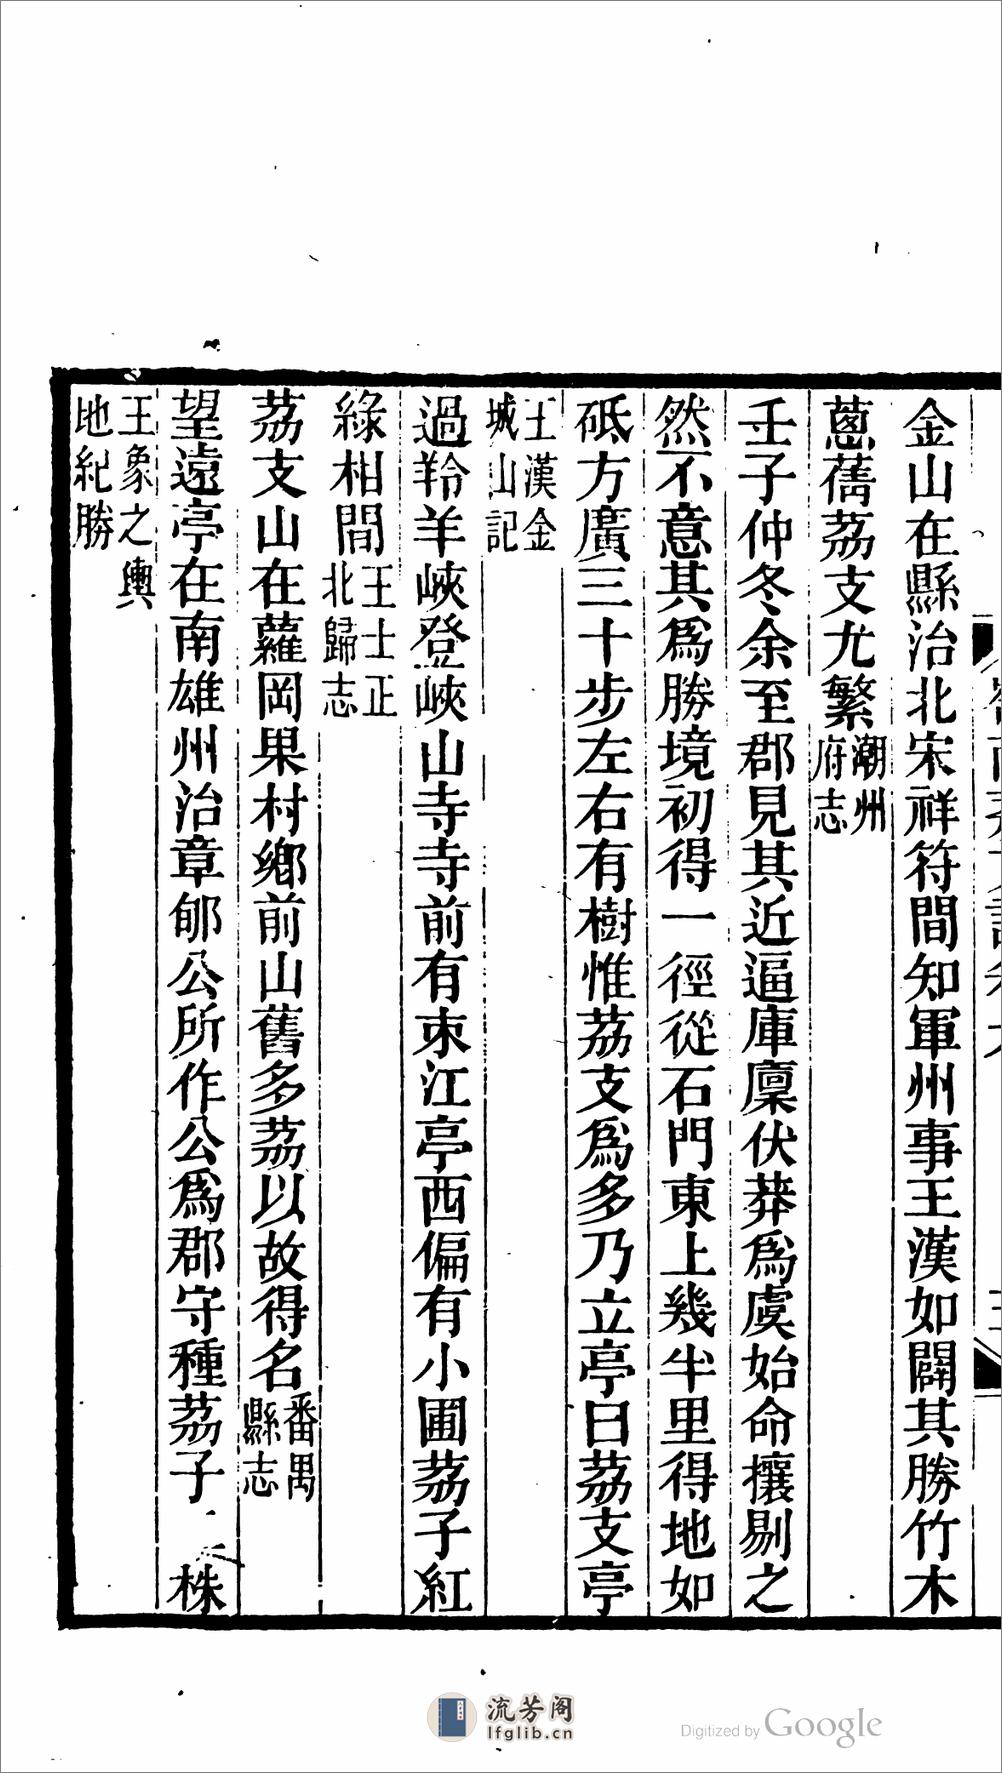 金山在縣治北宋祥符間知軍州事王漢如闢其勝竹木
蔥蒨荔支尤繁潮州府志
壬子仲冬余至郡見其近逼庫廩伏莽為虞始命攘剔之
然不意其為勝境初得一徑從石門東上幾半里得地如
砥方廣三十步左右有樹惟荔支為多乃立亭曰荔支亭
王漢金城山記
過羚羊峽登峽山寺寺前有束江亭西偏有小圃荔子紅
綠相間王士正北歸志
荔支山在蘿岡果村鄉前山舊多荔以故得名番禺縣志
望遠亭在南雄州治章郇公所作公為郡守種荔子 株
王象之輿地紀勝
流芳阁
lfglib.cn
Digitized by Google